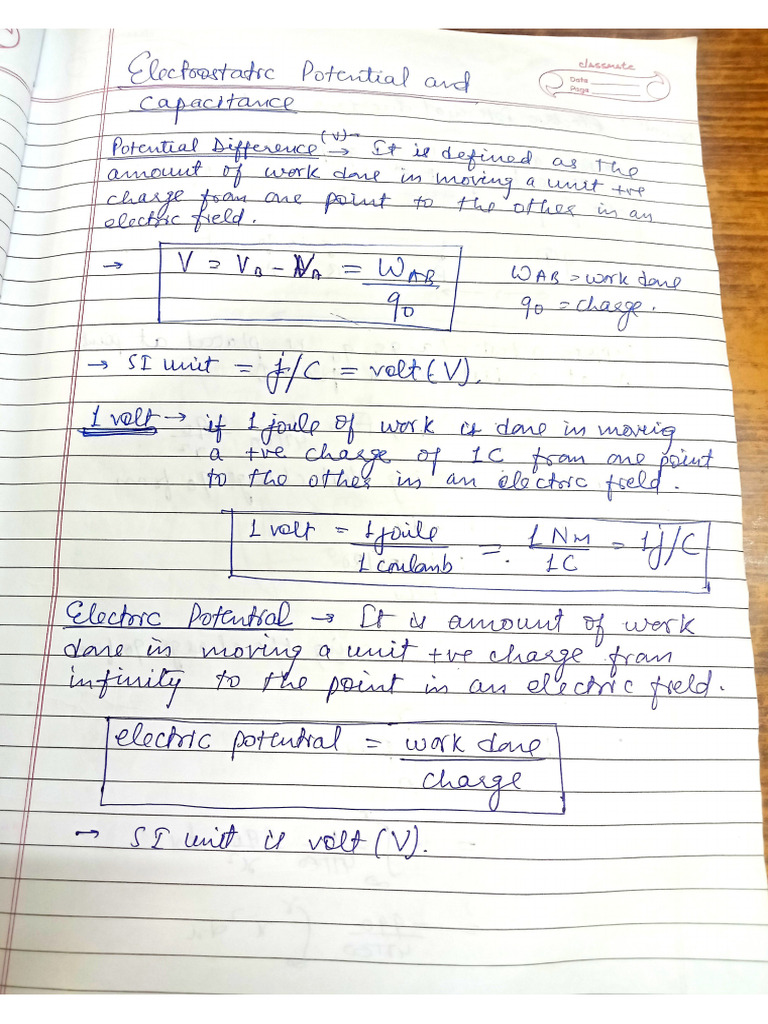 classmate
Date
Page
Electrostatic Potential and
Capacitance
Potential Difference (V) → It is defined as the
amount of work done in moving a unit +ve
charge from one point to the other in an
electric field.
→ V = VB - VA = WAB / q0
WAB = work done
q0 = charge.
→ SI unit = j/C = volt (V).
1 volt → if 1 joule of work is done in moving
a +ve charge of 1C from one point
to the other in an electric field.
1 volt = 1 joule / 1 coulamb = 1 Nm / 1C = 1j/C
Electric Potential → It is amount of work
done in moving a unit +ve charge from
infinity to the point in an electric field.
electric potential = work done / charge
→ SI unit is volt (V).